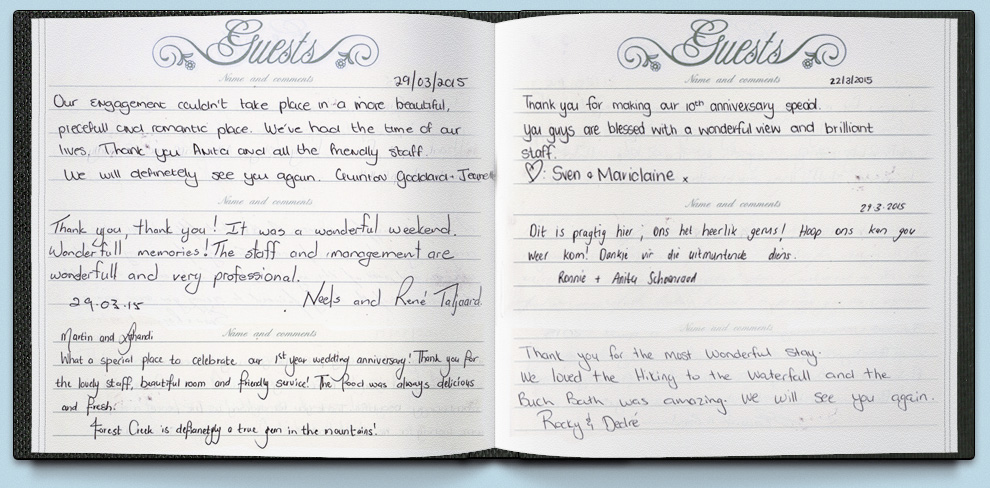 Guests
Name and comments
29/03/2015
Our Engagement couldn't take place in a more beautiful,
piecefull and romantic place. We've had the time of our
lives. Thank you Anita and all the friendly staff.
We will definetely see you again. Quinton Goddard +
Name and comments
Thank you, thank you! It was a wonderful weekend.
Wonderfull memories! The staff and management are
wonderfull and very professional.
29.03.15 Neels and René Taljaard.
Martin and
Name and comments
What a special place to celebrate our 1st year wedding anniversary! Thank you for
the lovely staff, beautiful room and friendly service! The food was always delicious
and fresh!
Forest Creek is a true gem in the mountains!
Guests
Name and comments
22/3/2015
Thank you for making our 10th anniversary special.
You guys are blessed with a wonderful view and brilliant
staff.
♡: Sven & Mariclaine x
Name and comments
29.3.2015
Dit is pragtig hier; ons het heerlik gerus! Hoop ons kan gou
weer kom! Dankie vir die uitmuntende diens.
Ronnie + Anita Schoonraad
Name and comments
Thank you for the most wonderful stay.
We loved the Hiking to the Waterfall and the
Buch Bath was amazing. We will see you again.
Rocky & Dedré